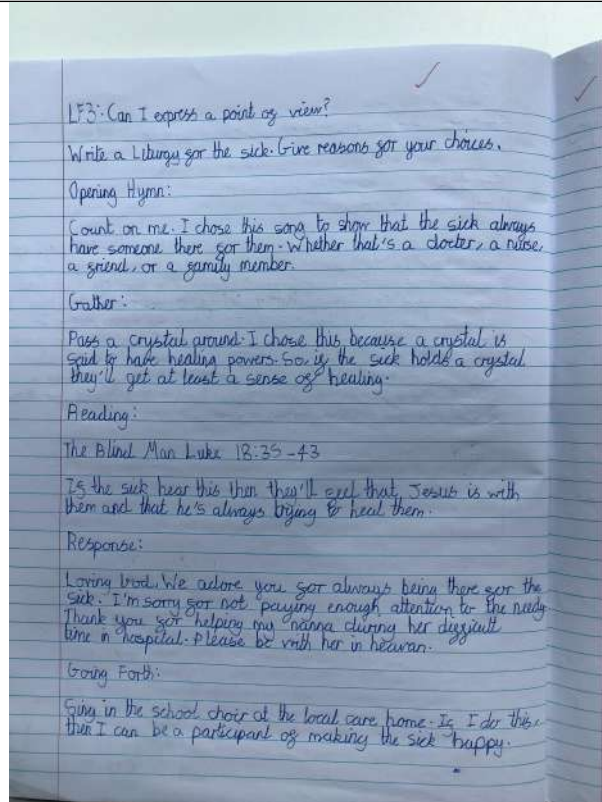 LF3: Can I express a point of view?
Write a Liturgy for the sick. Give reasons for your choices.
Opening Hymn:
Count on me. I chose this song to show that the sick always
have someone there for them. Whether that's a docter, a nurse,
a friend, or a family member.
Gather:
Pass a crystal around. I chose this because a crystal is
said to have healing powers. So, if the sick holds a crystal
they'll get at least a sense of healing.
Reading:
The Blind Man Luke 18:35-43
If the sick hear this then they'll feel that Jesus is with
them and that he's always trying to heal them.
Response:
Loving God, We adore you for always being there for the
sick. I'm sorry for not paying enough attention to the needy
Thank you for helping my nanna during her difficult
time in hospital. Please be with her in heavan.
Going Forth:
Sing in the school choir at the local care home. If I do this,
then I can be a participant of making the sick happy.